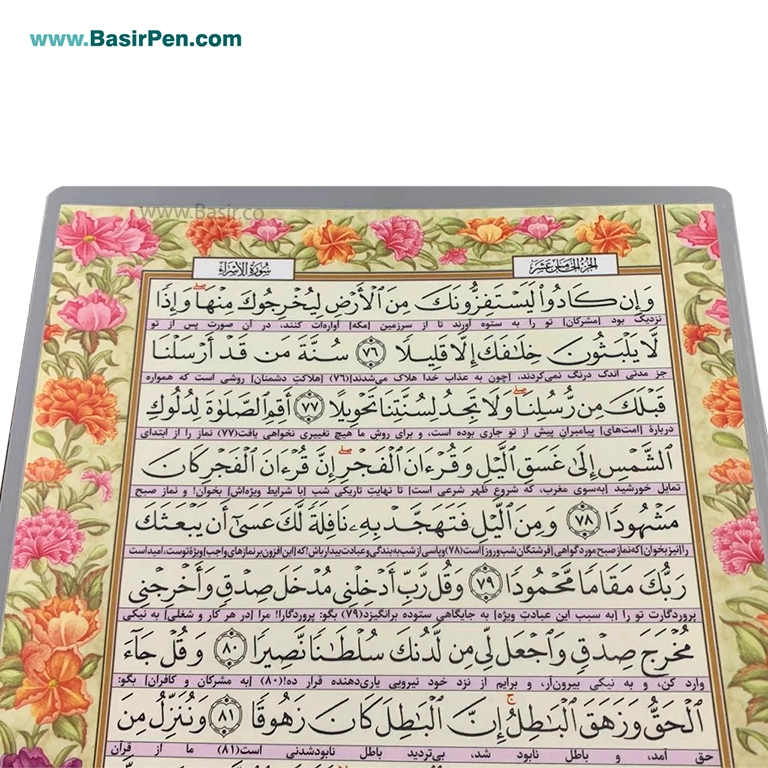 www.BasirPen.com
www.Basir.co
الجزء الخامس عشر
سورة الإسراء
وَإِن كَادُوا۟ لَيَسْتَفِزُّونَكَ مِنَ ٱلْأَرْضِ لِيُخْرِجُوكَ مِنْهَا ۖ وَإِذًا
نزدیک بود [مشرکان] تو را به ستوه آورند تا از سرزمین [مکه] آواره‌ات کنند، در آن صورت پس از تو
لَّا يَلْبَثُونَ خِلَـٰفَكَ إِلَّا قَلِيلًا ﴿٧٦﴾ سُنَّةَ مَن قَدْ أَرْسَلْنَا
جز مدتی اندک درنگ نمی‌کردند، [چون به عذاب خدا هلاک می‌شدند](۷۶) [هلاکتِ دشمنان] روشی است که همواره
قَبْلَكَ مِن رُّسُلِنَا ۖ وَلَا تَجِدُ لِسُنَّتِنَا تَحْوِيلًا ﴿٧٧﴾ أَقِمِ ٱلصَّلَوٰةَ لِدُلُوكِ
دربارهٔ [امت‌های] پیامبرانِ پیش از تو جاری بوده است، و برای روش ما هیچ تغییری نخواهی یافت(۷۷) نماز را از ابتدای
ٱلشَّمْسِ إِلَىٰ غَسَقِ ٱلَّيْلِ وَقُرْءَانَ ٱلْفَجْرِ ۖ إِنَّ قُرْءَانَ ٱلْفَجْرِ كَانَ
تمایل خورشید [به‌سوی مغرب، که شروع ظهر شرعی است] تا نهایتِ تاریکی شب [با شرایط ویژه‌اش] بخوان! و نماز صبح
مَشْهُودًا ﴿٧٨﴾ وَمِنَ ٱلَّيْلِ فَتَهَجَّدْ بِهِۦ نَافِلَةً لَّكَ عَسَىٰٓ أَن يَبْعَثَكَ
را [نیز بخوان] که نماز صبح مورد گواهی [فرشتگان شب و روز] است(۷۸) و پاسی از شب به بندگی و عبادت بیدار باش! که [این افزون بر نمازهای واجب] ویژهٔ توست، امید است
رَبُّكَ مَقَامًا مَّحْمُودًا ﴿٧٩﴾ وَقُل رَّبِّ أَدْخِلْنِى مُدْخَلَ صِدْقٍ وَأَخْرِجْنِى
پروردگارت تو را [به سبب این عبادتِ ویژه] به جایگاهی ستوده برانگیزد(۷۹) بگو: پروردگارا! مرا [در هر کار و شغلی] به نیکی
مُخْرَجَ صِدْقٍ وَٱجْعَل لِّى مِن لَّدُنكَ سُلْطَـٰنًا نَّصِيرًا ﴿٨٠﴾ وَقُلْ جَآءَ
وارد کن، و به نیکی بیرون‌آر، و برایم از نزد خود نیرویی یاری‌دهنده قرار ده!(۸۰) [به مشرکان و کافران] بگو:
ٱلْحَقُّ وَزَهَقَ ٱلْبَـٰطِلُ ۚ إِنَّ ٱلْبَـٰطِلَ كَانَ زَهُوقًا ﴿٨١﴾ وَنُنَزِّلُ مِنَ
حق آمد، و باطل نابود شد، بی‌تردید باطل نابودشدنی است(۸۱) ما از قرآن